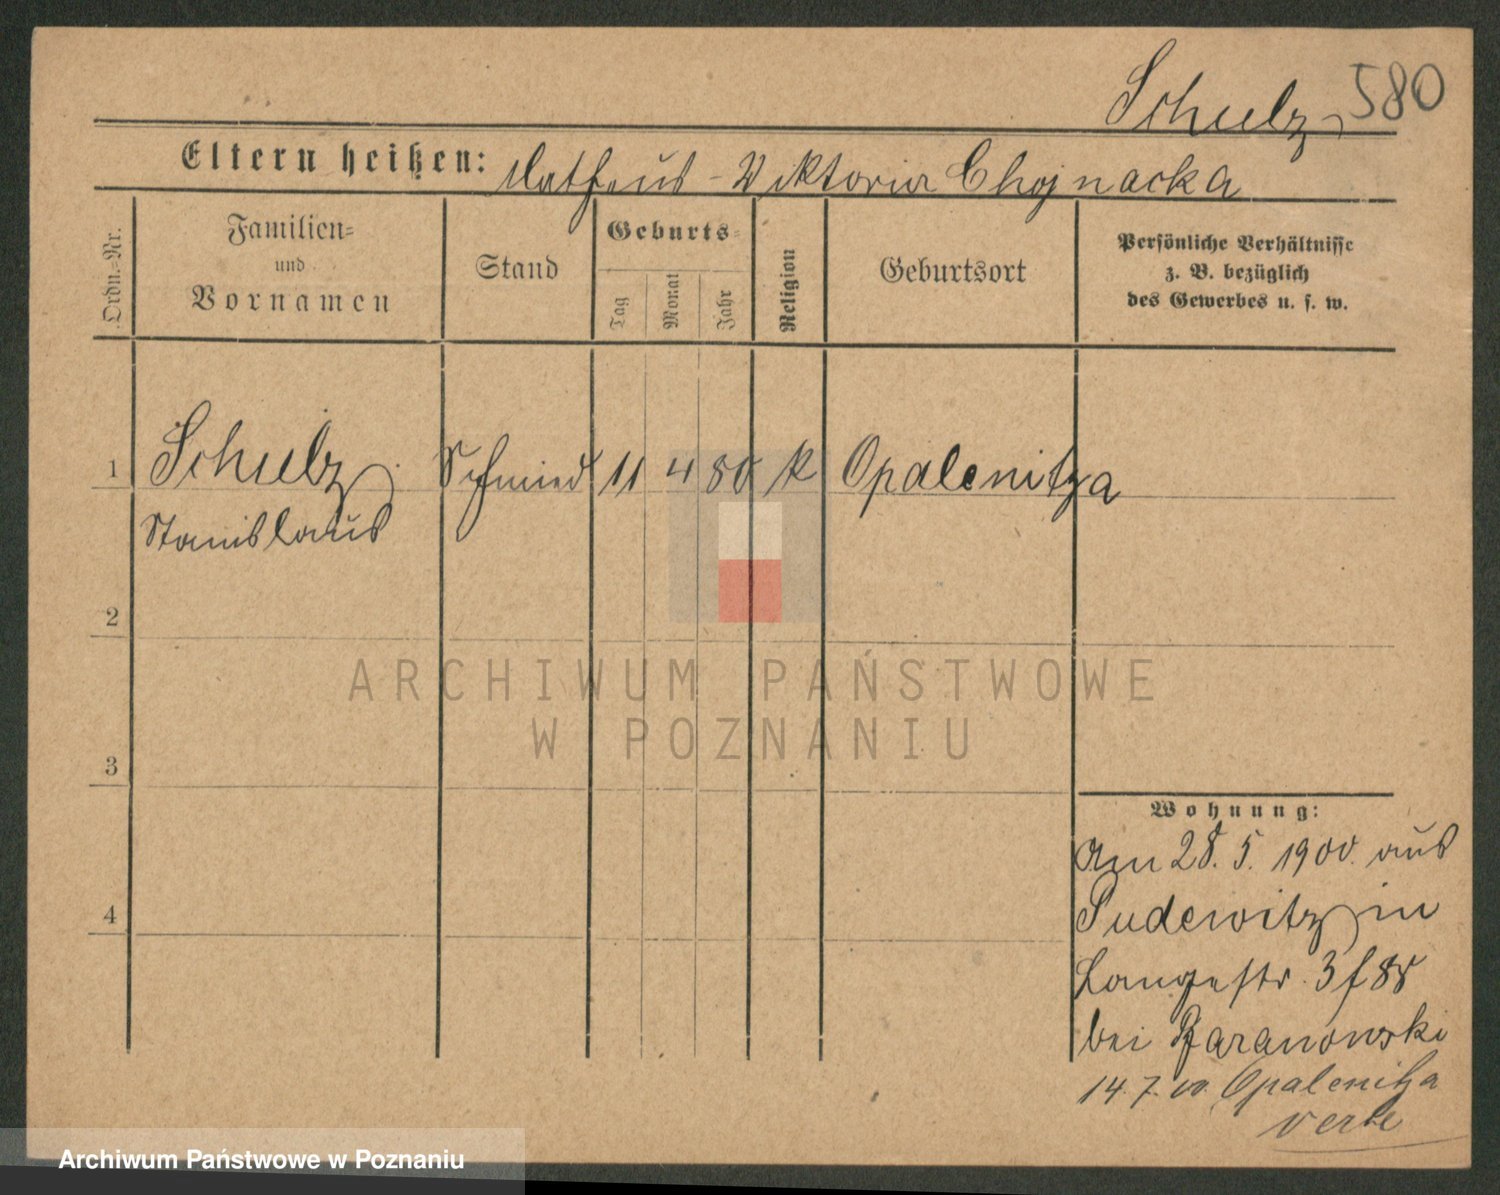 Schulz 580
Eltern heißen: Matheus - Viktoria Chojnacka
Ordn.=Nr.
Familien=
und
Vornamen
Stand
Geburts=
Tag
Monat
Jahr
Religion
Geburtsort
Persönliche Verhältnisse
z. B. bezüglich
des Gewerbes u. s. w.
1 Schulz Schmied 11 4 80 k Opalenitza
Stanislaus
2
3
4
ARCHIWUM PAŃSTWOWE
W POZNANIU
Wohnung:
Am 28. 5. 1900. aus
Pudewitz in
Langestr. 3
bei Baranowski
14. 7. 00. Opalenitza
Archiwum Państwowe w Poznaniu